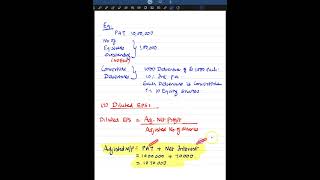 Eg:
PAT 10,00,000/
No of
Equities 1,00,000
Outstanding
Convertible 1000 Debenture of ₹1000 each
Debenture 10% Int. pa
Each Debenture is Convertible
10 Equity Shares
(1) Diluted EPS:
Diluted EPS = Adj. Net Profit
Adjusted No of Shares
Adjusted N/P = PAT + Net Interest
= 1000000 + 70000
= 1070000